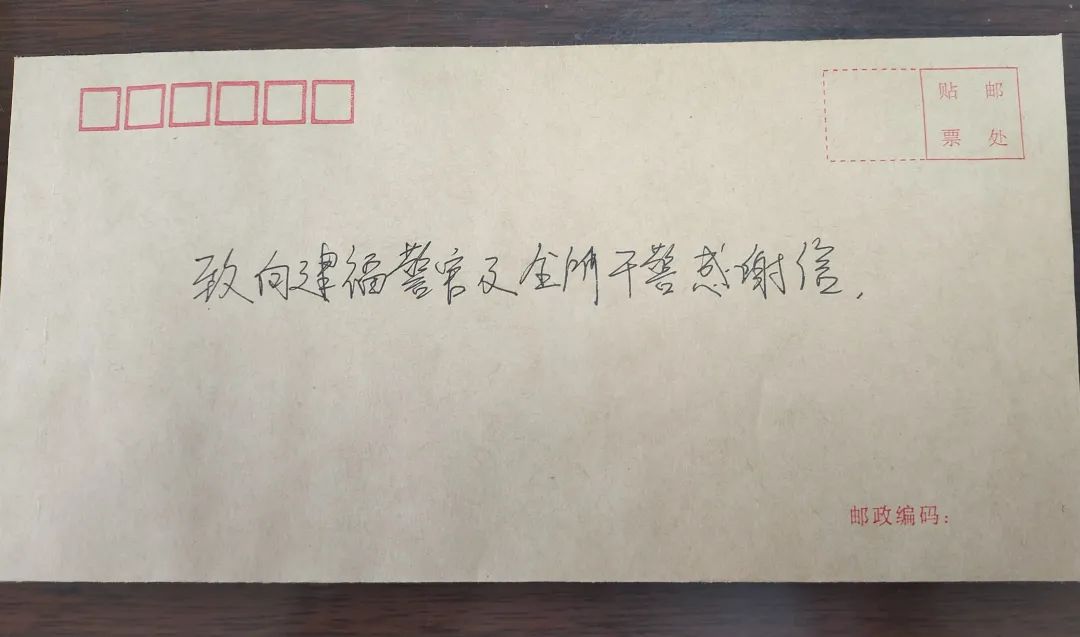 贴 邮
票 处
致向建福警官及全所干警感谢信.
邮政编码: